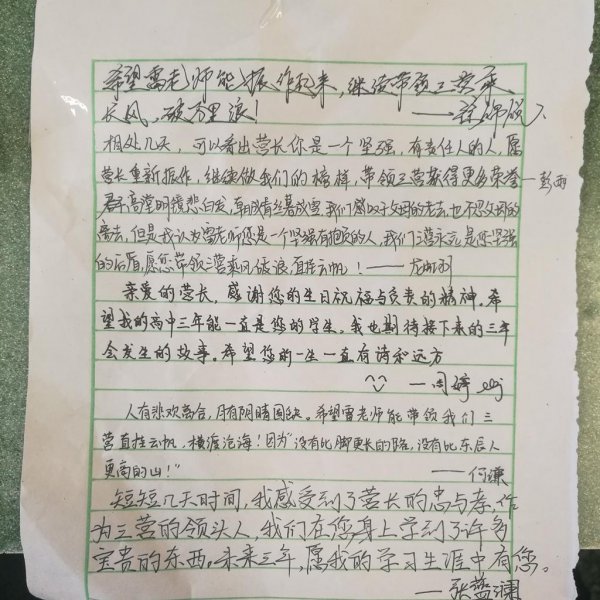 希望雷老师能振作起来,继续带领三营乘
长风,破万里浪!
相处几天,可以看出营长你是一个坚强,有责任人的人,愿
营长重新振作,继续做我们的榜样,带领三营获得更多荣誉—彭雨
君不见高堂明镜悲白发,朝成青丝暮成雪,我们感叹于父母的老去,也不忍父母的
离去,但是我认为雷老师您是一个坚强有担负的人,我们三营永远是您坚强
的后盾,愿您带领三营乘风破浪,直挂云帆!——龙
亲爱的营长,感谢您的生日祝福与负责的精神。希
望我的高中三年能一直是您的学生。我也期待接下来的三年
会发生的故事。希望您的一生一直有诗和远方
—闫婷
人有悲欢离合,月有阴晴圆缺。希望雷老师能带领我们三
营直挂云帆,横渡沧海!因为“没有比脚更长的路,没有比东辰人
更高的山!”
——何谦
短短几天时间,我感受到了营长的忠与孝,作
为三营的领头人,我们在您身上学到了许多
宝贵的东西。未来三年,愿我的学习生涯中有您。
—张蓝澜